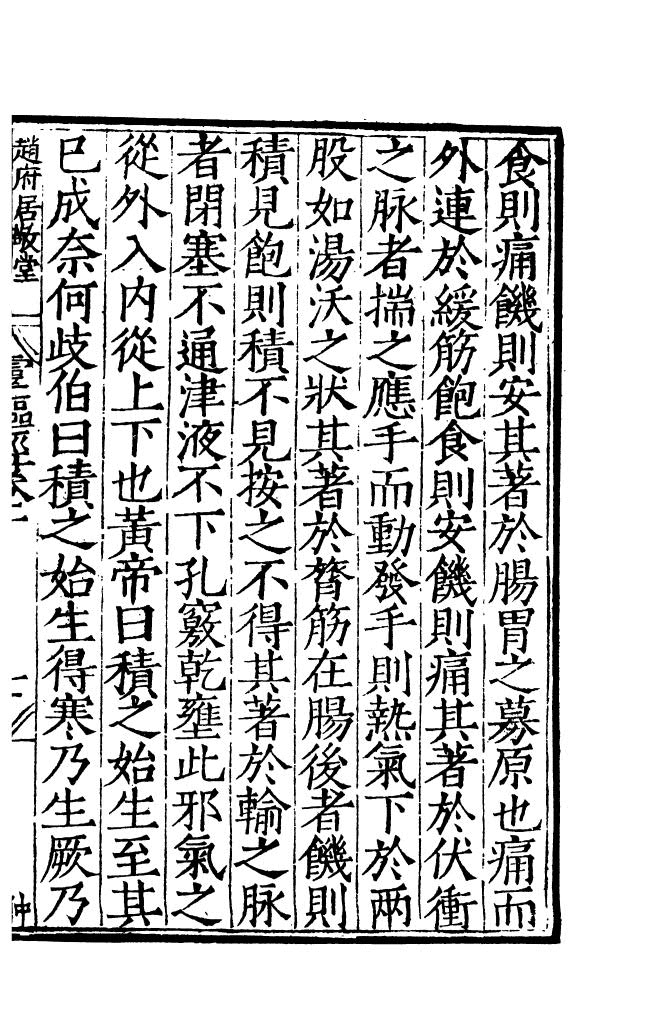 食則痛饑則安其著於腸胃之募原也痛而
外連於緩筋飽食則安饑則痛其著於伏衝
之脉者揣之應手而動發手則熱氣下於兩
股如湯沃之狀其著於膂筋在腸後者饑則
積見飽則積不見按之不得其著於輸之脉
者閉塞不通津液不下孔竅乾壅此邪氣之
從外入內從上下也黃帝曰積之始生至其
已成奈何歧伯曰積之始生得寒乃生厥乃
趙府居敬堂